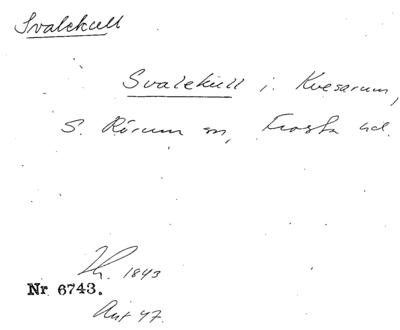 Svalekull
Svalekull i Kvesarum,
S. Rörum sn, Frosta hd.
1843
Nr 6743.
47.